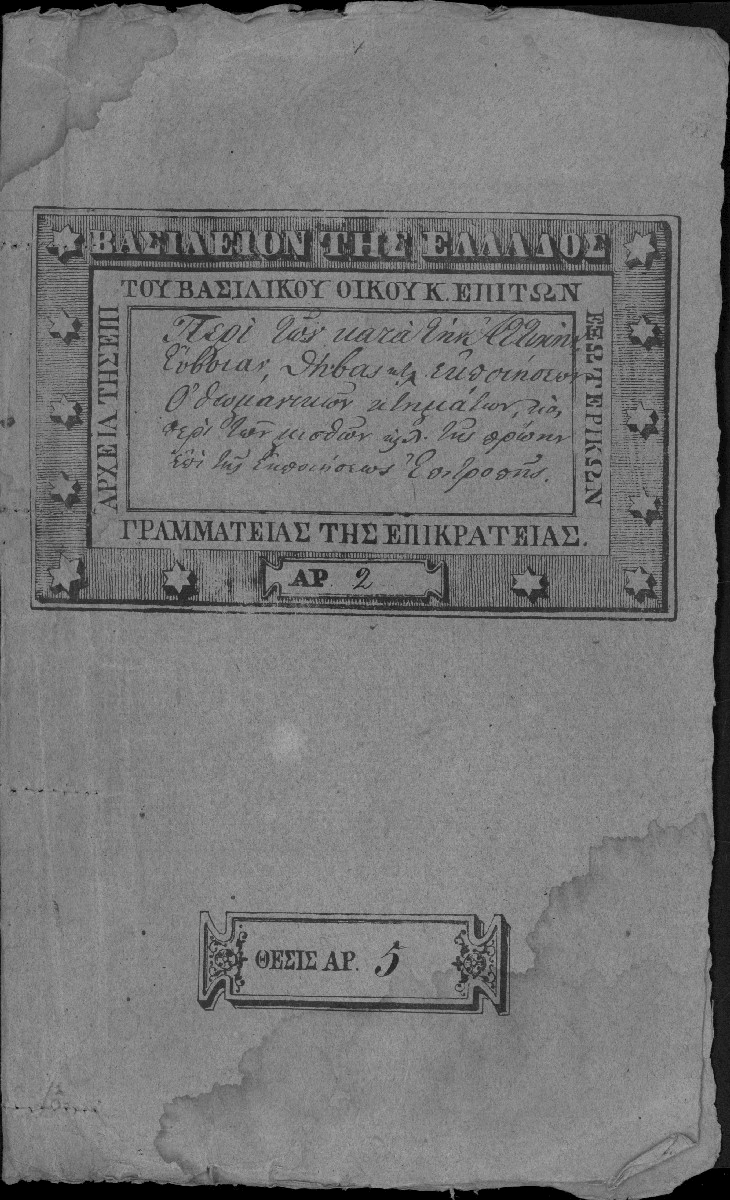 ΒΑΣΙΛΕΙΟΝ ΤΗΣ ΕΛΛΑΔΟΣ
ΑΡΧΕΙΑ ΤΗΣ ΕΠΙ
ΤΟΥ ΒΑΣΙΛΙΚΟΥ ΟΙΚΟΥ Κ. ΕΠΙ ΤΩΝ
ΕΞΩΤΕΡΙΚΩΝ
Περὶ τῶν κατὰ τὴν Ἀττικὴν,
Εὔβοιαν, Θήβας κτλ ἐκποιήσεων
Ὀθωμανικῶν κτημάτων, καὶ
περὶ τῶν μισθῶν κτλ. τῆς πρώην
ἐπὶ τῆς ἐκποιήσεως Ἐπιτροπῆς.
ΓΡΑΜΜΑΤΕΙΑΣ ΤΗΣ ΕΠΙΚΡΑΤΕΙΑΣ.
ΑΡ. 2
ΘΕΣΙΣ ΑΡ. 5